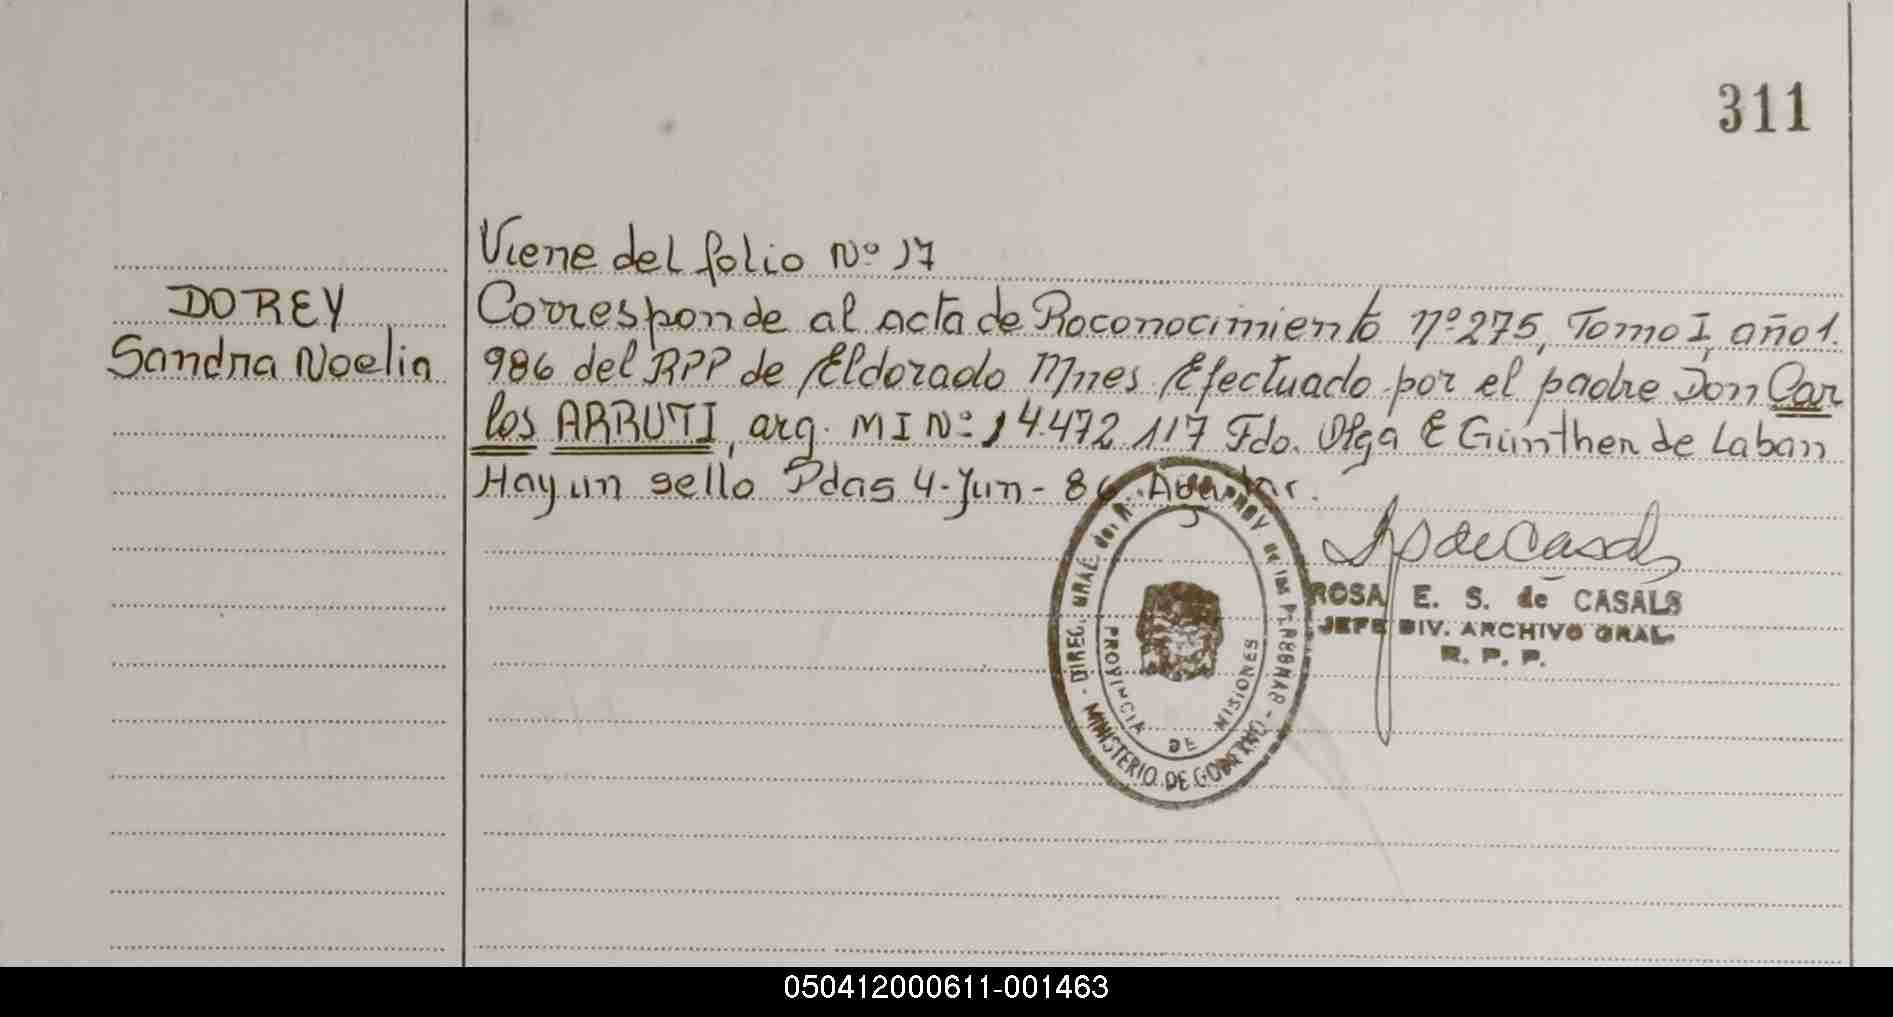 311
Viene del folio Nº 17
DOREY
Corresponde al acta de Roconocimiento nº 275, Tomo I, año 1.
Sandra Noelia
986 del RPP de Eldorado Mnes. Efectuado por el padre Don Car
los ARRUTI, arg. M I Nº 14.472.117 Fdo. Olga E Günther de Laban
Hay un sello Pdas 4-Jun-86.
ROSA E. S. de CASALS
JEFE DIV. ARCHIVO GRAL.
R. P. P.
DIREC. GRAL. del R. PROV. de las PERSONAS
MINISTERIO DE GOBIERNO
PROVINCIA DE MISIONES
050412000611-001463